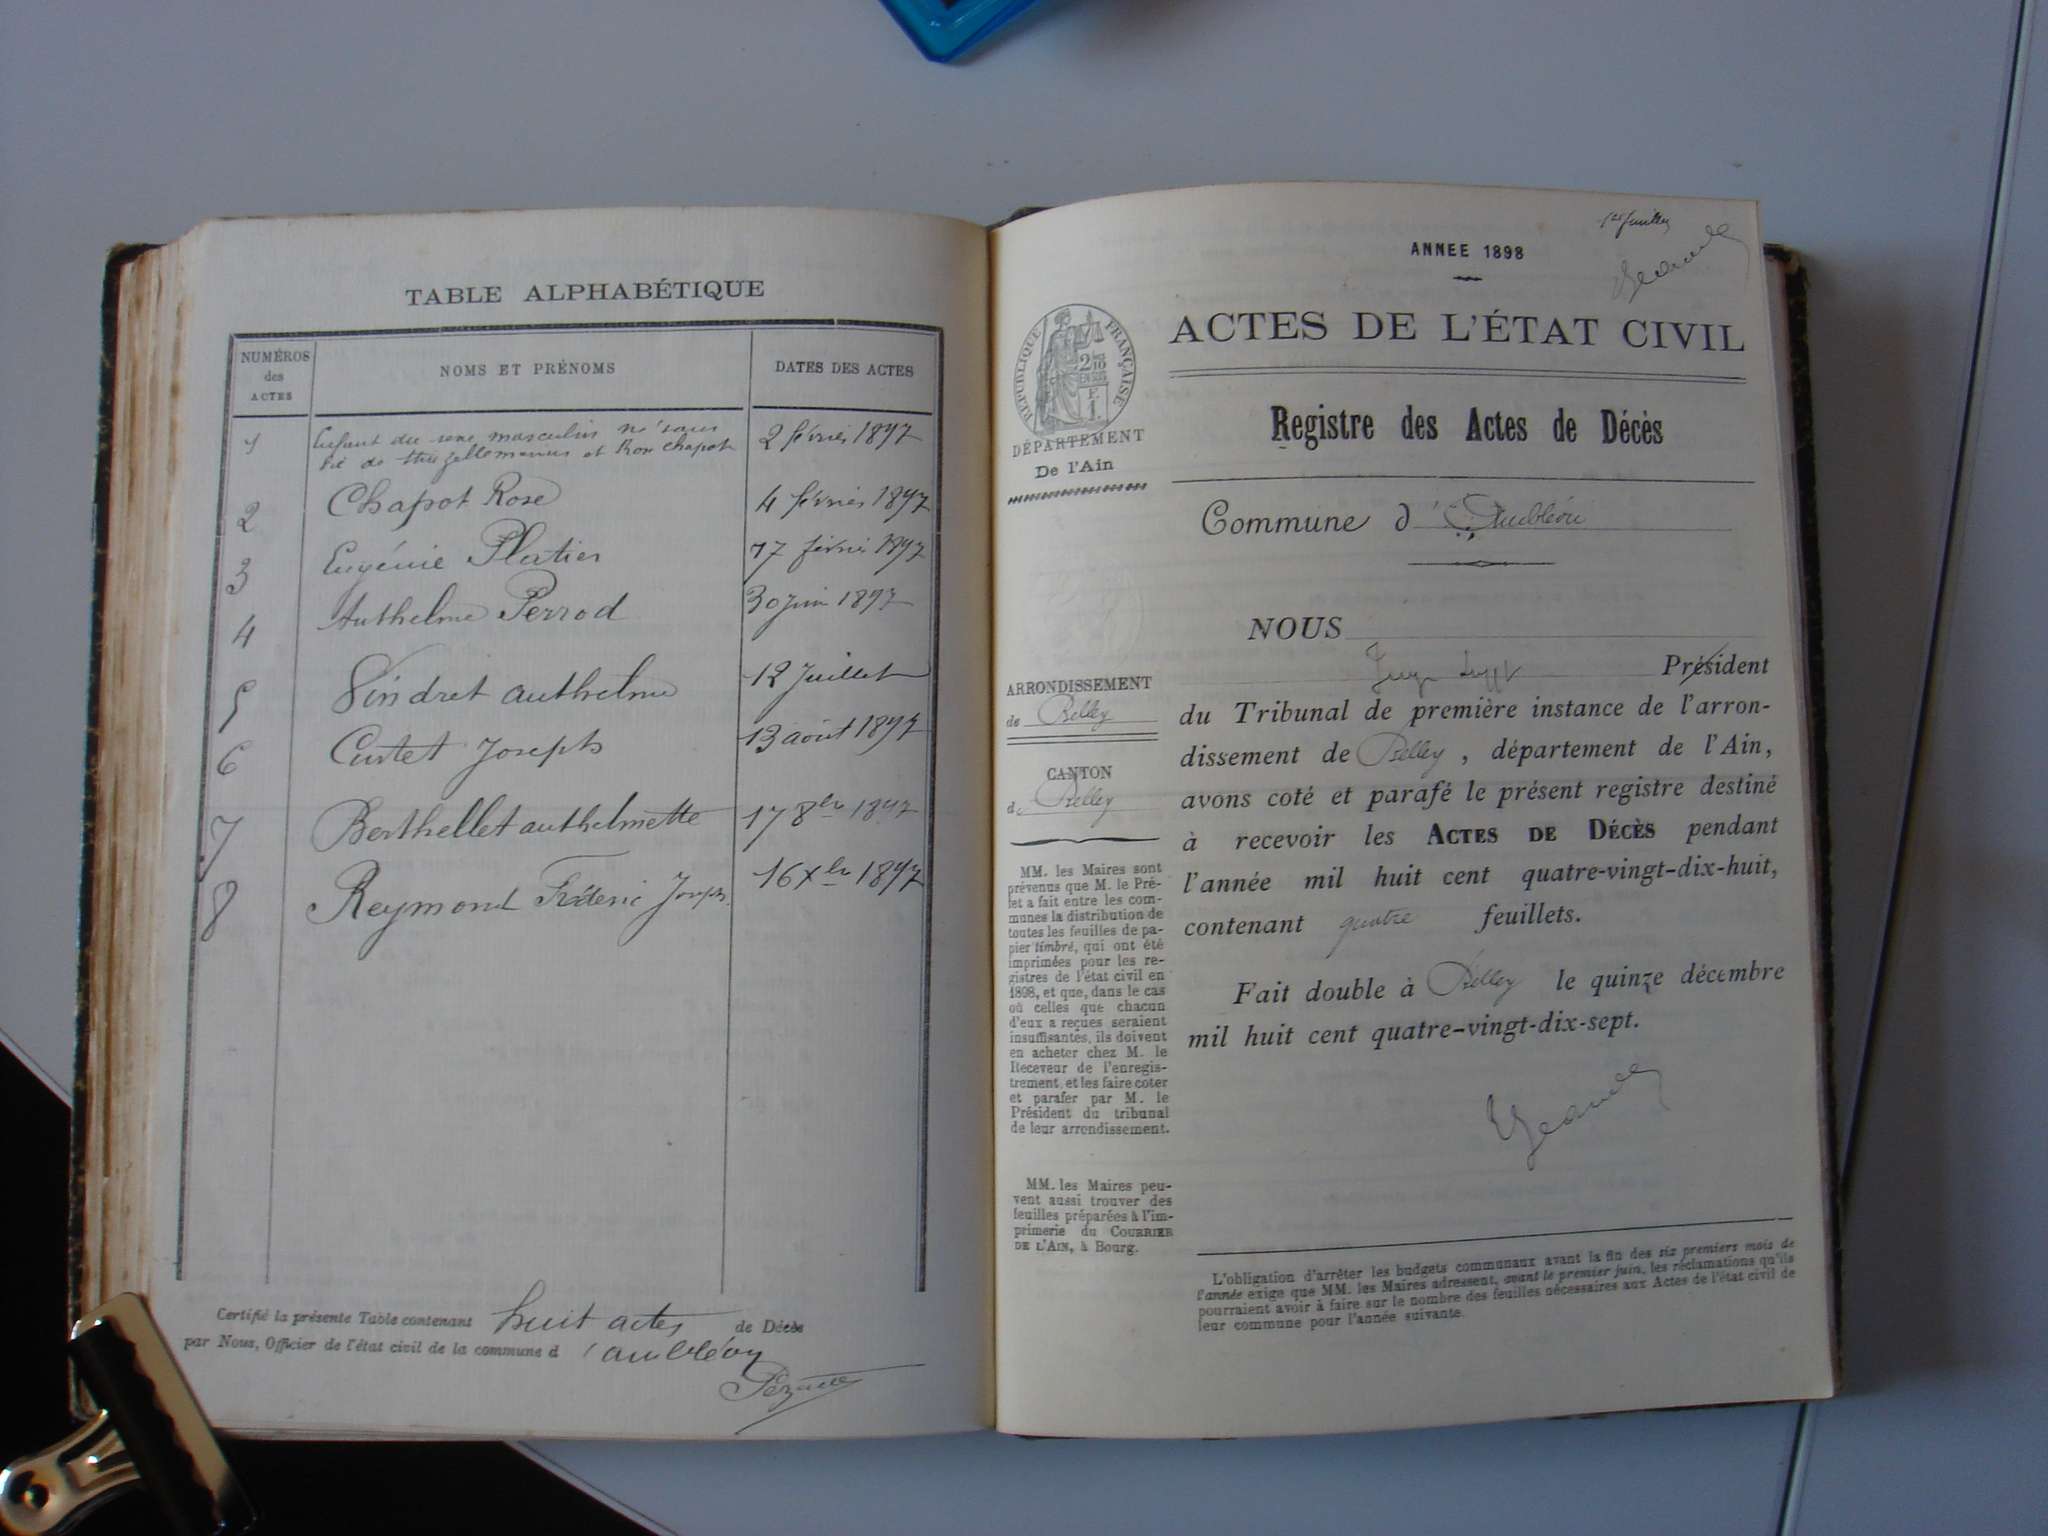 TABLE ALPHABÉTIQUE
NUMÉROS des ACTES
NOMS ET PRÉNOMS
DATES DES ACTES
1 Enfant du sexe masculin né sans 2 février 1897
vie de et Rose Chapot
2 Chapot Rose 4 février 1897
3 Eugénie Platier 17 février 1897
4 Anthelme Perrod 30 juin 1897
5 Vindret anthelme 12 Juillet
6 Curtet Joseph 13 août 1897
7 Berthellet anthelmette 17 8bre 1897
8 Reymond Fréderic Joseph. 16 Xbre 1897
Certifié la présente Table contenant huit actes de Décès
par Nous, Officier de l'état civil de la commune d'ambléon
1er feuillet
ANNEE 1898
ACTES DE L'ÉTAT CIVIL
RÉPUBLIQUE FRANÇAISE
2/10 EN SUS
F. 1.
DÉPARTEMENT
De l'Ain
Registre des Actes de Décès
Commune d'Ambléon
NOUS
Juge suppt Président
du Tribunal de première instance de l'arron-
dissement de Belley, département de l'Ain,
avons coté et parafé le présent registre destiné
à recevoir les ACTES DE DÉCÈS pendant
l'année mil huit cent quatre-vingt-dix-huit,
contenant quatre feuillets.
Fait double à Belley le quinze décembre
mil huit cent quatre-vingt-dix-sept.
ARRONDISSEMENT
de Belley
CANTON
de Belley
MM. les Maires sont
prévenus que M. le Pré-
fet a fait entre les com-
munes la distribution de
toutes les feuilles de pa-
pier timbré, qui ont été
imprimées pour les re-
gistres de l'état civil en
1898, et que, dans le cas
où celles que chacun
d'eux a reçues seraient
insuffisantes, ils doivent
en acheter chez M. le
Receveur de l'enregis-
trement, et les faire coter
et parafer par M. le
Président du tribunal
de leur arrondissement.
MM. les Maires peu-
vent aussi trouver des
feuilles préparées à l'im-
primerie du COURRIER
DE L'AIN, à Bourg.
L'obligation d'arrêter les budgets communaux avant la fin des six premiers mois de
l'année exige que MM. les Maires adressent, avant le premier juin, les réclamations qu'ils
pourraient avoir à faire sur le nombre des feuilles nécessaires aux Actes de l'état civil de
leur commune pour l'année suivante.